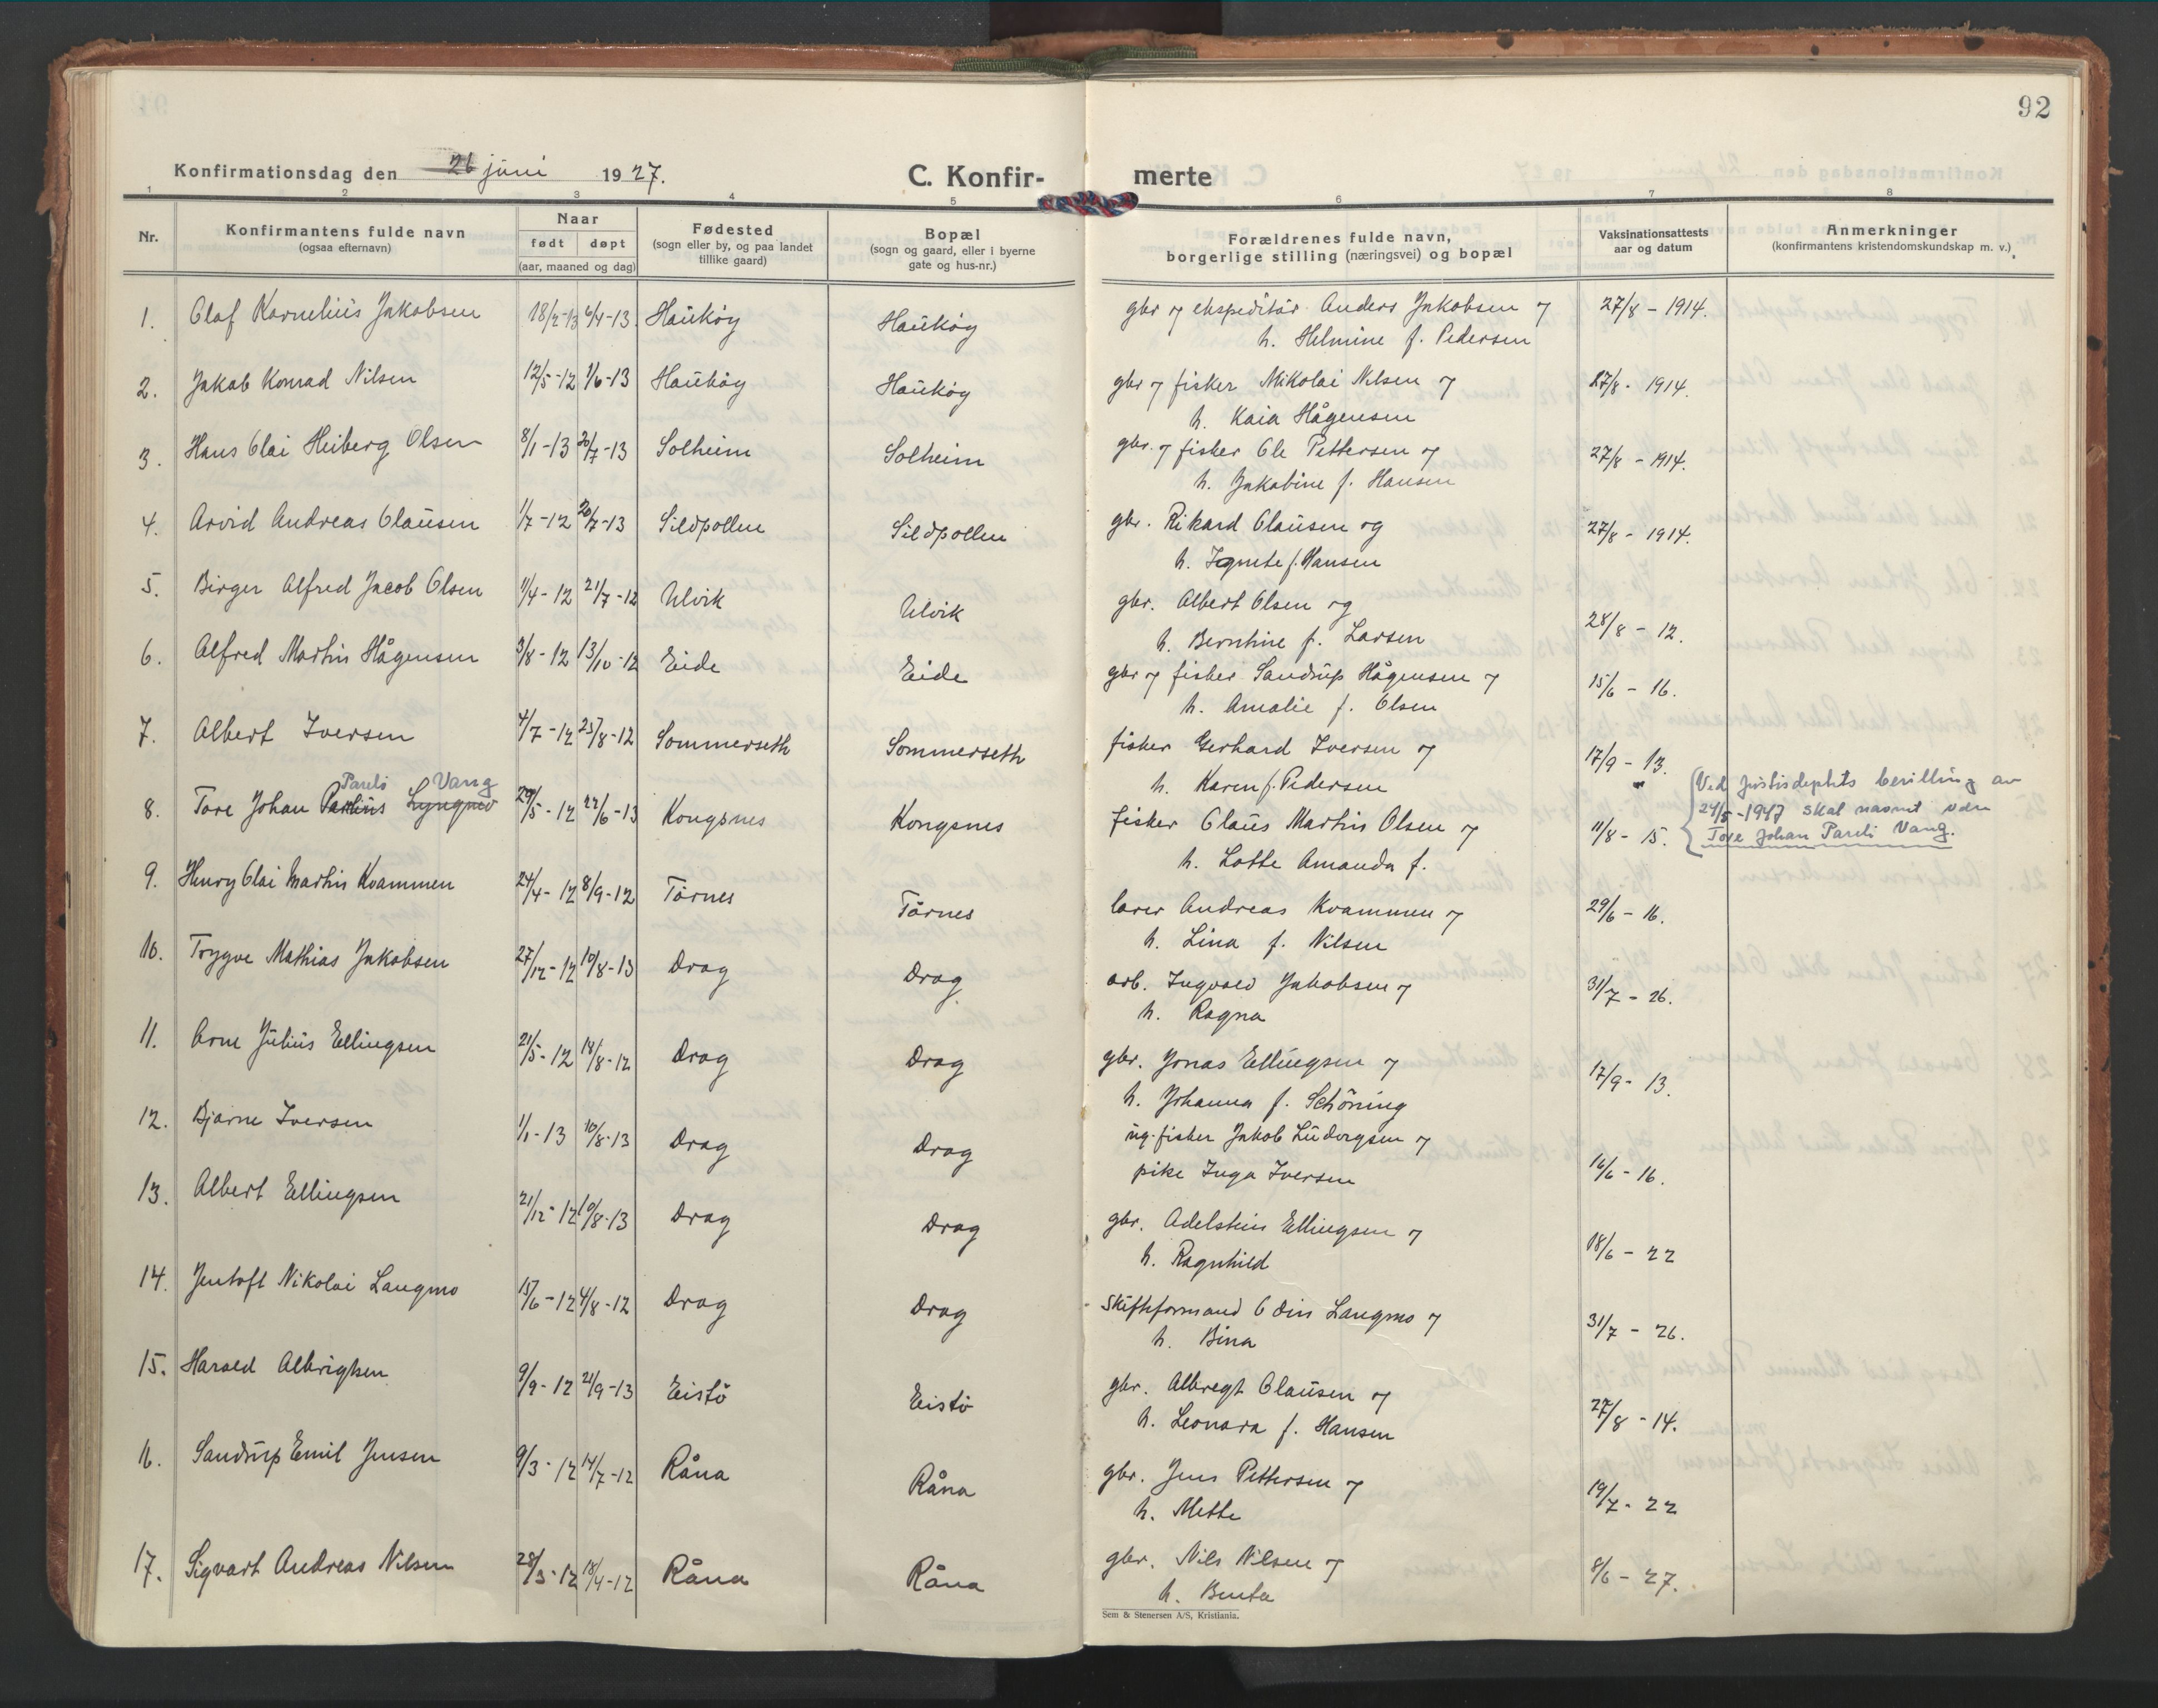 92
Konfirmationsdag den 26 juni 1927.
C. Konfirmerte
1 2 3 4 5 6 7 8
Nr.
Konfirmantens fulde navn
(ogsaa efternavn)
Naar
født døpt
(aar, maaned og dag)
Fødested
(sogn eller by, og paa landet
tillike gaard)
Bopæl
(sogn og gaard, eller i byerne
gate og hus-nr.)
Forældrenes fulde navn,
borgerlige stilling (næringsvei) og bopæl
Vaksinationsattests
aar og datum
Anmerkninger
(konfirmantens kristendomskundskap m. v.)
1. Olaf Kornelius Jakobsen 18/2-13 6/4-13 Haukøy Haukøy gbr og ekspeditør Anders Jakobsen og 27/8 - 1914.
h. Helmine f. Pedersen
2. Jakob Konrad Nilsen 12/5-12 1/6-13 Haukøy Haukøy gbr og fisker Mikolai Nilsen og 27/8 - 1914.
h. Kaia Hågensen
3. Hans Olai Heiberg Olsen 8/1-13 20/7-13 Solheim Solheim gbr. og fisker Ole Pettersen og 27/8 - 1914.
h. Jakobine f. Hansen
4. Arvid Andreas Clausen 1/7-12 20/7-13 Sildpollen Sildpollen gbr. Rikard Clausen og 27/8 - 1914.
h. Agnete f. Hansen
5. Birger Alfred Jacob Olsen 11/4-12 21/7-12 Ulvik Ulvik gbr. Albert Olsen og 28/8 - 12.
h. Berntine f. Larsen
6. Alfred Martin Hågensen 3/8-12 13/10-12 Eide Eide gbr og fisker Sandrup Hågensen og 15/6 - 16.
h. Amalie f. Olsen
7. Albert Iversen 4/7-12 25/8-12 Sommerseth Sommerseth fisker Gerhard Iversen og 17/9 - 13.
h. Karen f. Pedersen
Pareli Vang
8. Tore Johan Paulius Lyngmo 29/5-12 22/6-13 Kongsnes Kongsnes fisker Claus Martin Olsen og 11/8 - 15.
h. Lotte Amanda f.
Ved Justisdeptets bevilling av
24/5-1947 skal navnet være
Tore Johan Pareli Vang.
9. Henry Olai Martin Kvammen 24/4-12 8/9-12 Tårnes Tårnes lærer Andreas Kvammen og 29/6 - 16.
h. Lina f. Nilsen
10. Trygve Mathias Jakobsen 27/12-12 10/8-13 Drag Drag arb. Ingvald Jakobsen og 31/7 - 26.
h. Ragna
11. Arne Julius Ellingsen 21/5-12 18/8-12 Drag Drag gbr. Jonas Ellingsen og 17/9 - 13.
h. Johanna f. Schöning
12. Bjarne Iversen 1/1-13 10/8-13 Drag Drag ug. fisker Jakob Ludvigsen og 16/6 - 16.
pike Inga Iversen
13. Albert Ellingsen 21/12-12 10/8-13 Drag Drag gbr. Adelsten Ellingsen og 18/6 - 22
h. Ragnhild
14. Jentoft Nikolai Langmo 15/6-12 4/8-12 Drag Drag skifteformand Odin Langmo og 31/7 - 26.
h. Bina
15. Harald Albrigtsen 9/9-12 21/9-13 Eistö Eistö gbr. Albregt Clausen og 27/8 - 14.
h. Leonora f. Hansen
16. Sandrup Emil Jensen 9/3-12 14/7-12 Råna Råna gbr. Jens Pettersen og 19/7 - 22
h. Mette
17. Sigvart Andreas Nilsen 28/3-12 18/4-12 Råna Råna gbr. Nils Nilsen og 8/6 - 27.
h. Berta
Sem & Stenersen A/S, Kristiania.